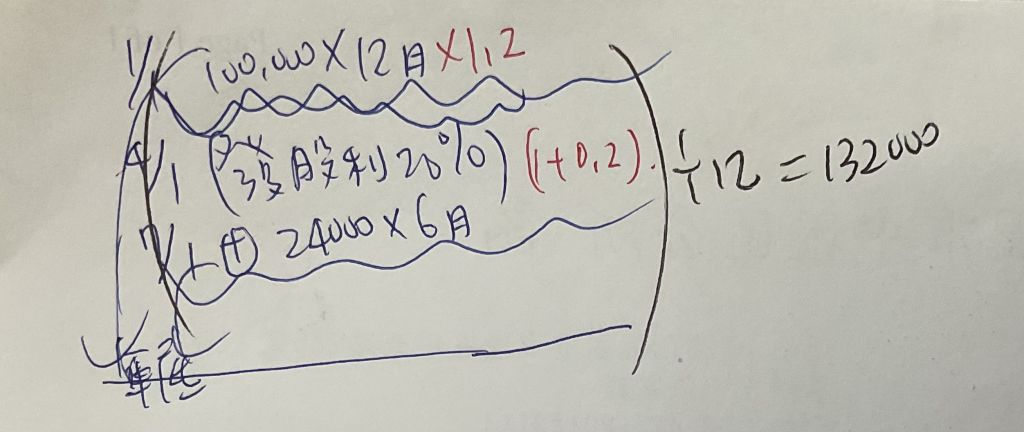 1/1 100,000×12月×1.2
4/1 (發股利20%) (1+0.2).
7/1 ⊕ 24000×6月
÷12=132000